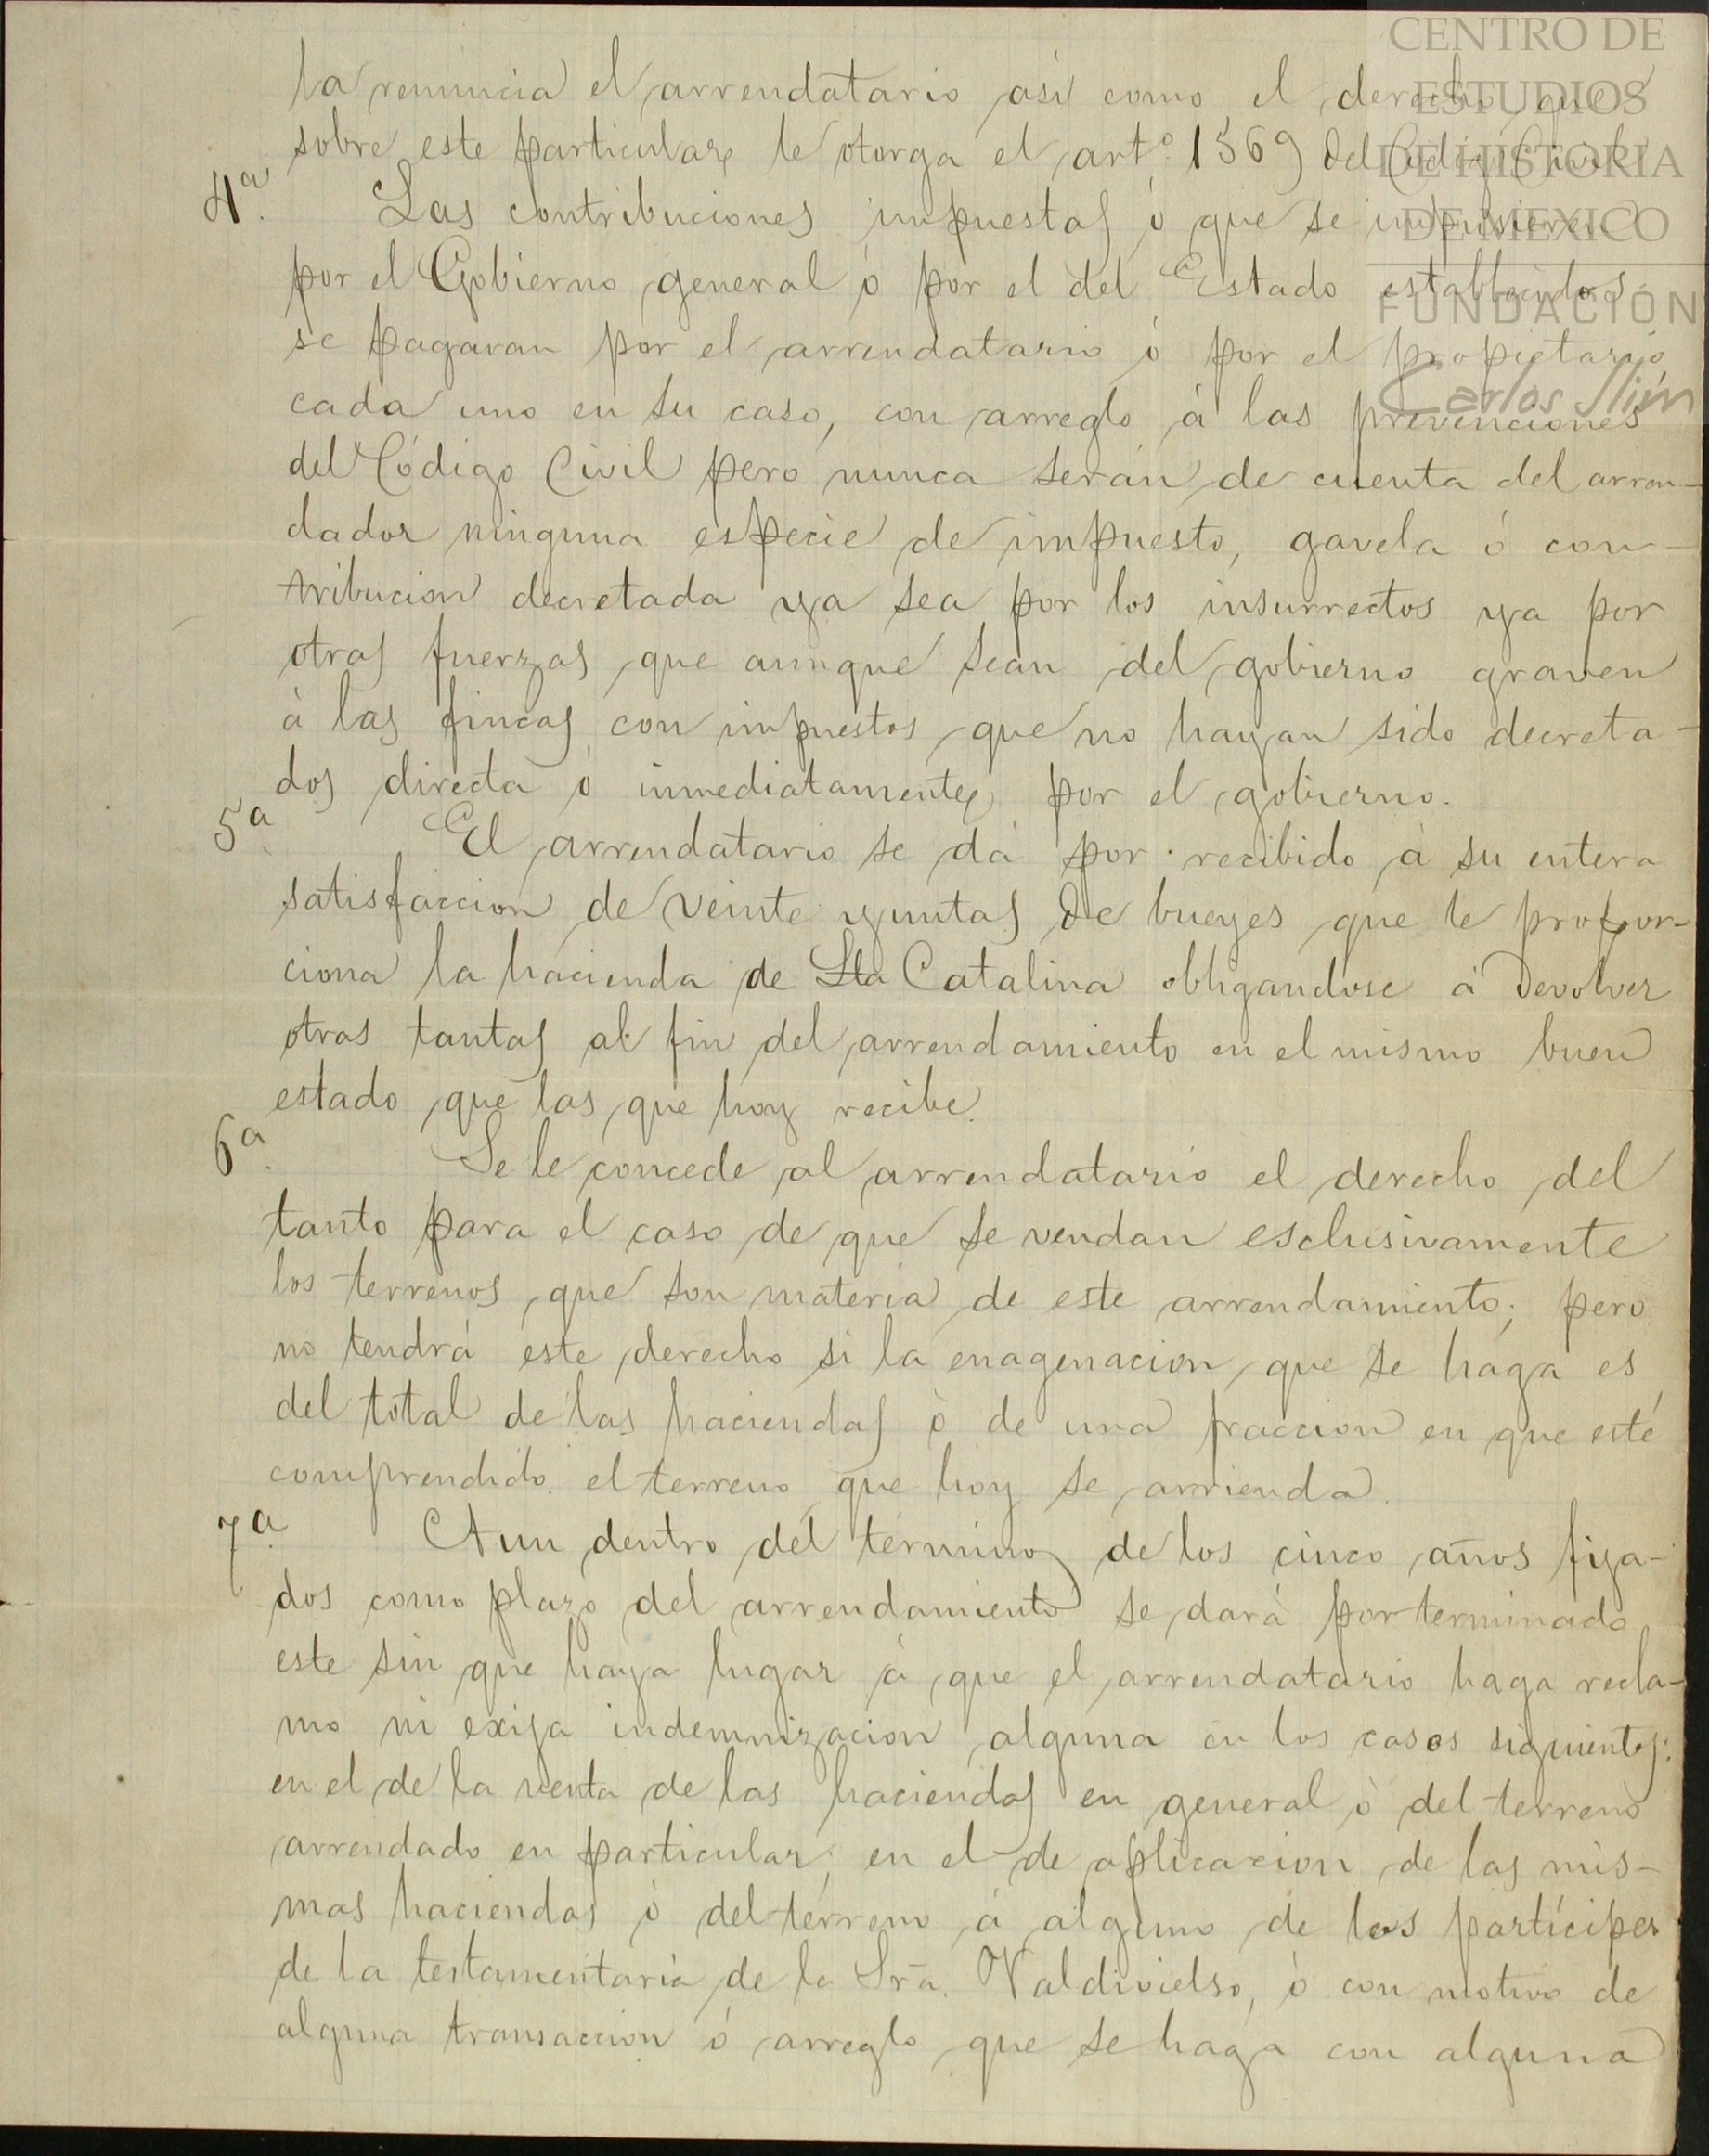 CENTRO DE
ESTUDIOS
DE HISTORIA
DE MEXICO
FUNDACIÓN
Carlos Slim
la renuncia el arrendatario asi como el derecho que
sobre este particular le otorga el art.º 1369 del Codigo Civil
4ª. Las contribuciones impuestas ó que se impusieren
por el Gobierno general ó por el del Estado establecidos
se pagaran por el arrendatario ó por el propietario
cada uno en su caso, con arreglo á las prevenciones
del Código Civil pero nunca serán de cuenta del arren-
dador ninguna especie de impuesto, gavela ó con-
tribucion decretada ya sea por los insurrectos ya por
otras fuerzas que aunque sean del gobierno graven
á las fincas con impuestos que no hayan sido decreta-
dos directa ó inmediatamente por el gobierno.
5ª. El arrendatario se dá por recibido á su entera
satisfaccion de veinte yuntas de bueyes que le propor-
ciona la hacienda de Sta Catalina obligandose á devolver
otras tantas al fin del arrendamiento en el mismo buen
estado que las que hoy recibe.
6ª. Se le concede al arrendatario el derecho del
tanto para el caso de que se vendan esclusivamente
los terrenos que son materia de este arrendamiento; pero
no tendrá este derecho si la enagenacion que se haga es
del total de las haciendas ó de una fraccion en que esté
comprendido el terreno que hoy se arrienda.
7ª. Aun dentro del término de los cinco años fija-
dos como plazo del arrendamiento se dará por terminado
este sin que haya lugar á que el arrendatario haga recla-
mo ni exija indemnizacion alguna en los casos siguientes:
en el de la venta de las haciendas en general ó del terreno
arrendado en particular; en el de aplicacion de las mis-
mas haciendas ó del terreno á alguno de los partícipes
de la testamentaría de la Sra. Valdivielso, ó con motivo de
alguna transaccion ó arreglo que se haga con alguna